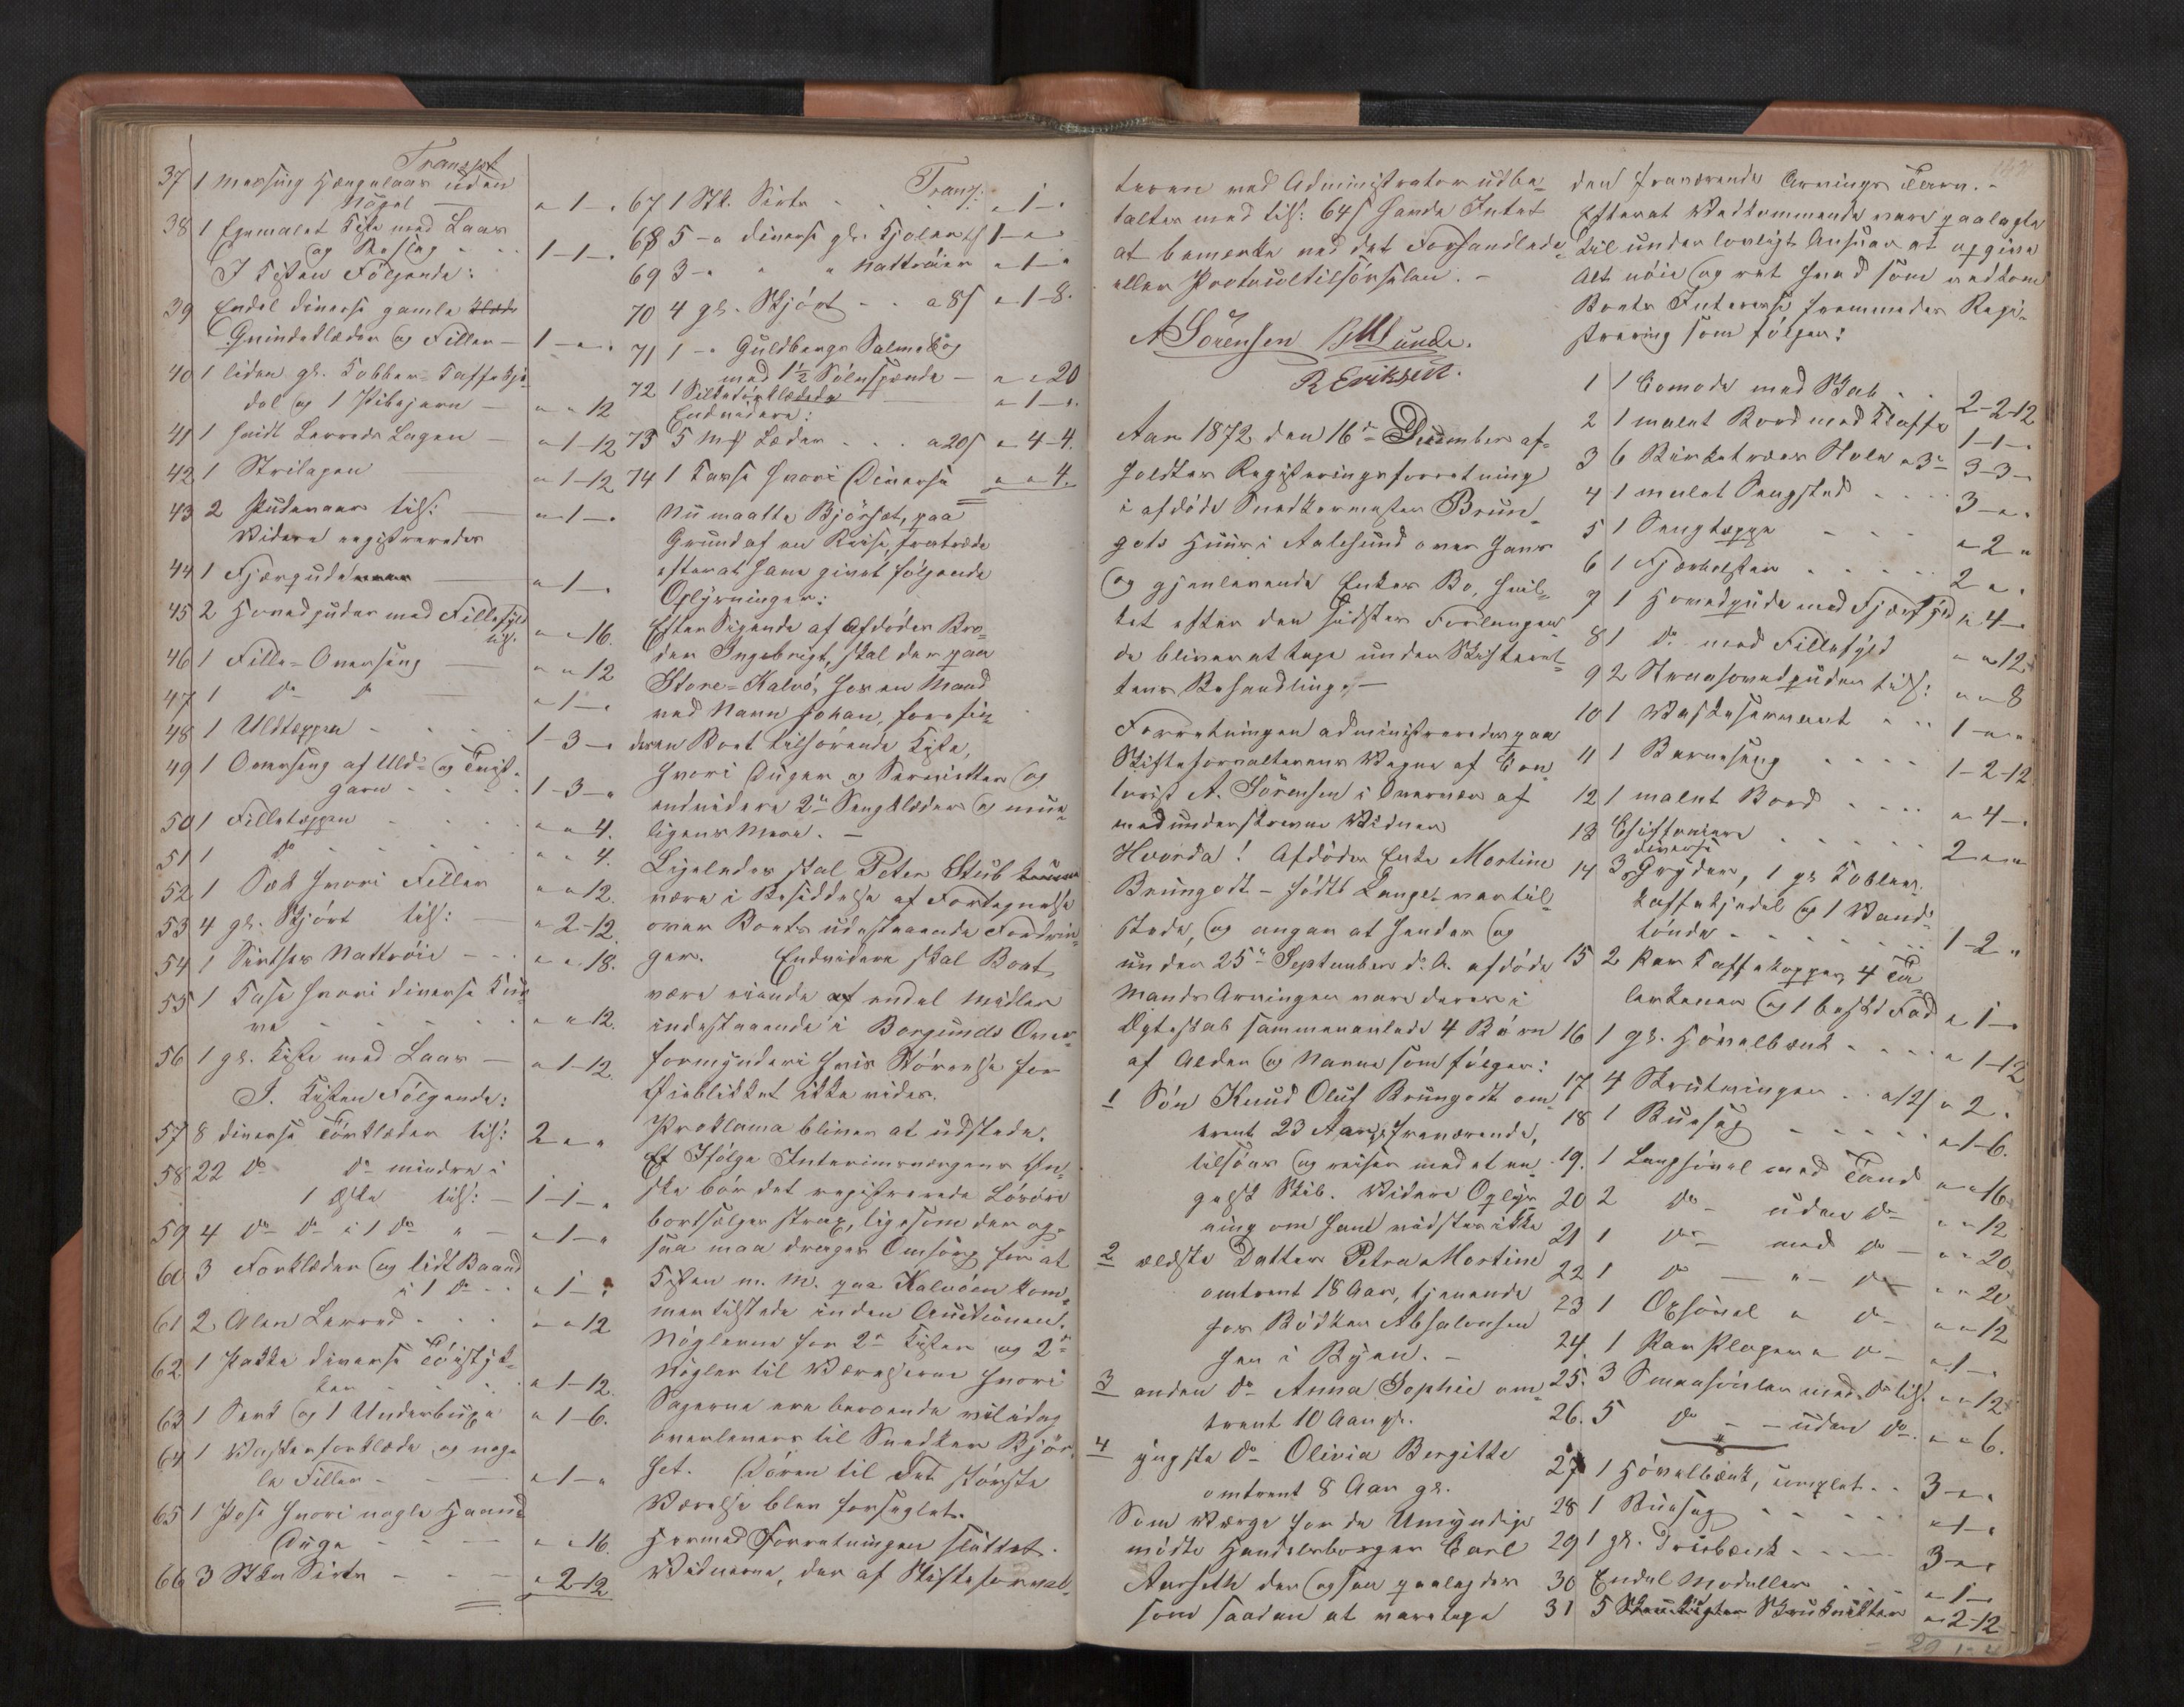 Transpt
37 1 Messing Hængelaas uden
Nøgel " 1 – "
38 1 Egemalet Kiste med Laas
og Beslag 1 – 1 – "
I Kisten Følgende:
39 Endel diverse gamle
Qvindeklæder og Filler – 1 – " .
40 1 liden gl. Kobber-Kaffekje-
del og 1 Pibejern – " " 12
41 1 hvidt Lerreds Lagen – " 1 – 12
42 1 Strilagen " 1 – 12
43 2 Pudevaar tils: " 1 – "
Videre registreredes
44 1 Fjærpude " 1 – "
45 2 Hovedpuder med Fillefyld
tils. " " 16.
46 1 Fille-Oversæng " " 12
47 1 do do " 1 – "
48 1 Uldteppe 1 – 3 – "
49 1 Oversæng af Uld- og Tvist-
garn 1 – 3 – "
50 1 Filleteppe " " 4.
51 1 do " " 4.
52 1 Sæk hvori Filler " " 12.
53 4 gl. Skjørt tils: " 2 – 12.
54 1 Sirtses Nattrøie " " 18.
55 1 Kasse hvori diverse
" " 12.
56 1 gl. Kiste med Laas – " 1 – 12.
I Kisten Følgende:
57 8 diverse Tørklæder tils: 2 " "
58 22 do do mindre i
1 Æske tils: – 1 – 1 – "
59 4 do do i 1 do " – " 1 – "
60 3 Forklæder og lidt Baand
i 1 do " 1 – "
61 2 Alen Lerred " " 12
62 1 Pakke diverse Tøistyk-
ker " 1 – 12.
63 1 Særk og 1 Underbuxe " 1 – 6.
64 1 Voxforklæde og nog-
le Filler " 1 – "
65 1 Pose hvori nogle Haand-
Duge " " 16.
66 3 Stkr Sirts " 2 – 12
Transp:
67 1 Stk. Sirts " 1 – "
68 5 – " diverse gl. Kjoler 1 – "
69 3 – " " Nattrøier " 1 – "
70 4 gl. Skjørt a 8s " 1 – 8.
71 1 – " Guldbergs Salmebog
med 1½ Sølvspænde – " " 20
72 1 Silketørklæde " 1 – "
Endvidere:
73 5 Læder a 20s " 4 – 4.
74 1 Kasse hvori Diverse " " 4.
Nu maatte Bjørset, paa
Grund af en Reise, fratræde
efterat have givet følgende
Oplysninger:
Efter Sigende af Afdødes Bro-
der Ingebrigt, skal der paa
Store-Kalvø, hos en Mand
ved Navn Johan, forefin-
des en Boet tilhørende Kiste,
hvori Duger og Servietter og
endvidere 2de Sengklæder og mue-
ligens Mere. –
Ligeledes skal Peter Stub
være i Besiddelse af Fortegnelse
over Boets udestaaende Fordrin-
ger. Endvidere skal Boet
være eiende af endel Midler
indestaaende i Borgunds Over-
formynderi hvis Størrelse for
Øieblikket ikke vides.
Proklama bliver at udstede.
Ifølge Interimsværgens Øn-
ske bør det registrerede Løsøre
bortsælges strax, ligesom der og-
saa maa drages Omsorg for at
Kisten m. M. paa Kalvøen kom-
mer tilstede inden Auctionen.
Nøglerne for 2de Kister og 2de
Nøgler til Værelserne hvori
Sagerne ere beroende vil idag
overleveres til Snedker Bjør-
set. Døren til det største
Værelse blev forseglet.
Hermed Forretningen sluttet.
Vidnerne, der af Skifteforval-
teren ved Administrator udbe-
taltes med tils: 64s havde Intet
at bemerke ved det Forhandlede
eller Protocoltilførselen. –
A Sörensen B M Lunde.
R Eriksen.
Aar 1872 den 16de December af-
holdtes Registreringsforretning
i afdøde Snedkermester Brun-
gots Huus i Aalesund over hans
og gjenlevende Enkes Bo, hvil-
ket efter den Sidstes Forlangen-
de bliver at tage under Skifteret-
tens Behandling. –
Forretningen administreredes paa
Skifteforvalterens Vegne af Con-
torist A. Sörensen i Overvær af
medunderskrevne Vidner
Hvorda! Afdødes Enke Martine
Brungodt – fødte Lange, var til-
stede, og angav at hendes og
under 25de September d. A. afdøde
Mands Arvinger vare deres i
Ægteskab sammenavlede 4 Børn
af Alder og Navne som følger:
1 Søn Knud Oluf Brungodt om-
trent 23 Aar, fraværende,
tilsøes og reiser med et en-
gelsk Skib. Videre Oplys-
ning om ham vidstes ikke
2 ældste Datter Petra Martine
omtrent 18 Aar, tjenende
hos Bödker Absalonsen
her i Byen. –
3 anden do Anna Sophie om-
trent 10 Aar gl.
4 yngste do Olivia Bergitte
omtrent 8 Aar gl.
Som Værge for de Umyndige
mödte Handelsborger Carl
Aarseth der ogsaa paalagdes
som saadan at varetage
den fraværende Arvings Tarv. –
Efterat Vedkommende vare paalagte
til under lovligt Ansvar at opgive
Alt nöie og ret hvad som vedkom
Boets Interesse fremmedes Regi-
strering som følger:
1 1 Comode med Skab 2 – 2 – 12
2 1 malet Bord med Klaffe 1 – 1 – "
3 6 Birketræes Stole a 3s 3 – 3 –
4 1 malet Sengsted 3 – " "
5 1 Sengteppe " 2 "
6 1 Fjærbolster 2 " "
7 1 Hovedpude med Fjærfyld " 4 –
8 1 do med Fillefyld " " 12
9 2 Straahovedpuder tils: " " 8
10 1 Vaskeservant 1 – " "
11 1 Barneseng 1 – 2 – 12
12 1 malet Bord " 4 –
13 Chiffoniere 2 – " "
14 3 diverse Gryder, 1 gl Kobber-
kaffekjedel og 1 Vand-
tønde 1 – 2 "
15 2 Par Kaffekopper, 4 Ta-
lerkener og 1 Fad " 1 –
16 1 gl. Høvelbænk " 1 – 12
17 4 Skrutvinger a 12s " 2 "
18 1 Buesag " 1 – 6.
19. 1 Langhøvel med Tand " " 16
20 2 do uden do " " 12
21 1 do med do " " 20
22 1 do – " – do " " 20
23 1 Oxhøvel " do " " 12
24. 1 Par Plogere do " 1 –
25. 3 Smaahøvler med do tils. " " 12
26. 5 do – – uden do " " 6.
27 1 Høvelbænk, complet 3 – " "
28 1 Buesag " 1 – "
29 1 gl. Dreiebænk 3 – " "
30 Endel Modeller " 1 –
31 5 Skruknækter " 2 – 12